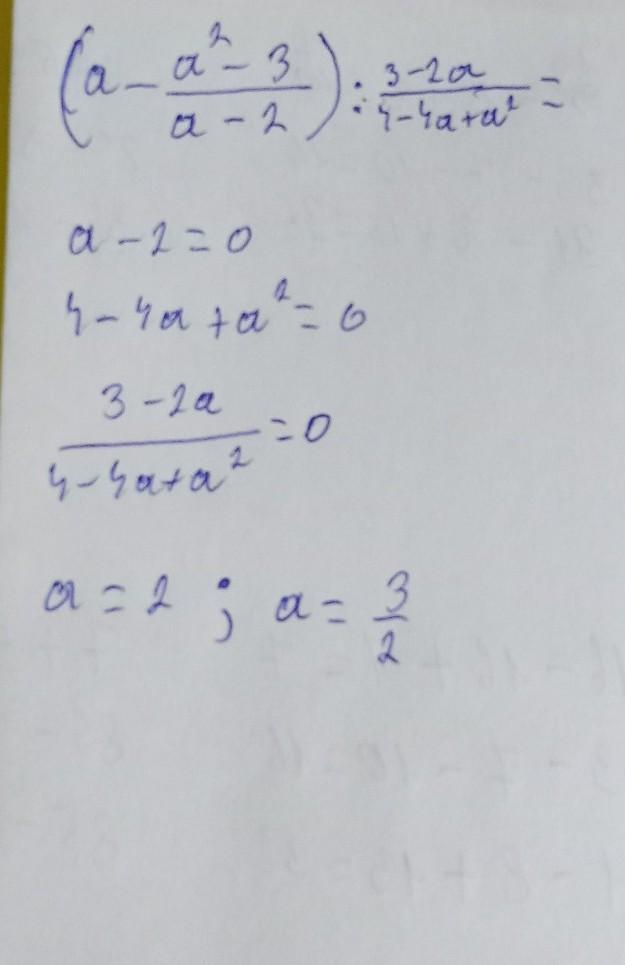 (a - \frac{a^2 - 3}{a - 2}) : \frac{3 - 2a}{4 - 4a + a^2} =
a - 2 = 0
4 - 4a + a^2 = 0
\frac{3 - 2a}{4 - 4a + a^2} = 0
a = 2 ; a = \frac{3}{2}